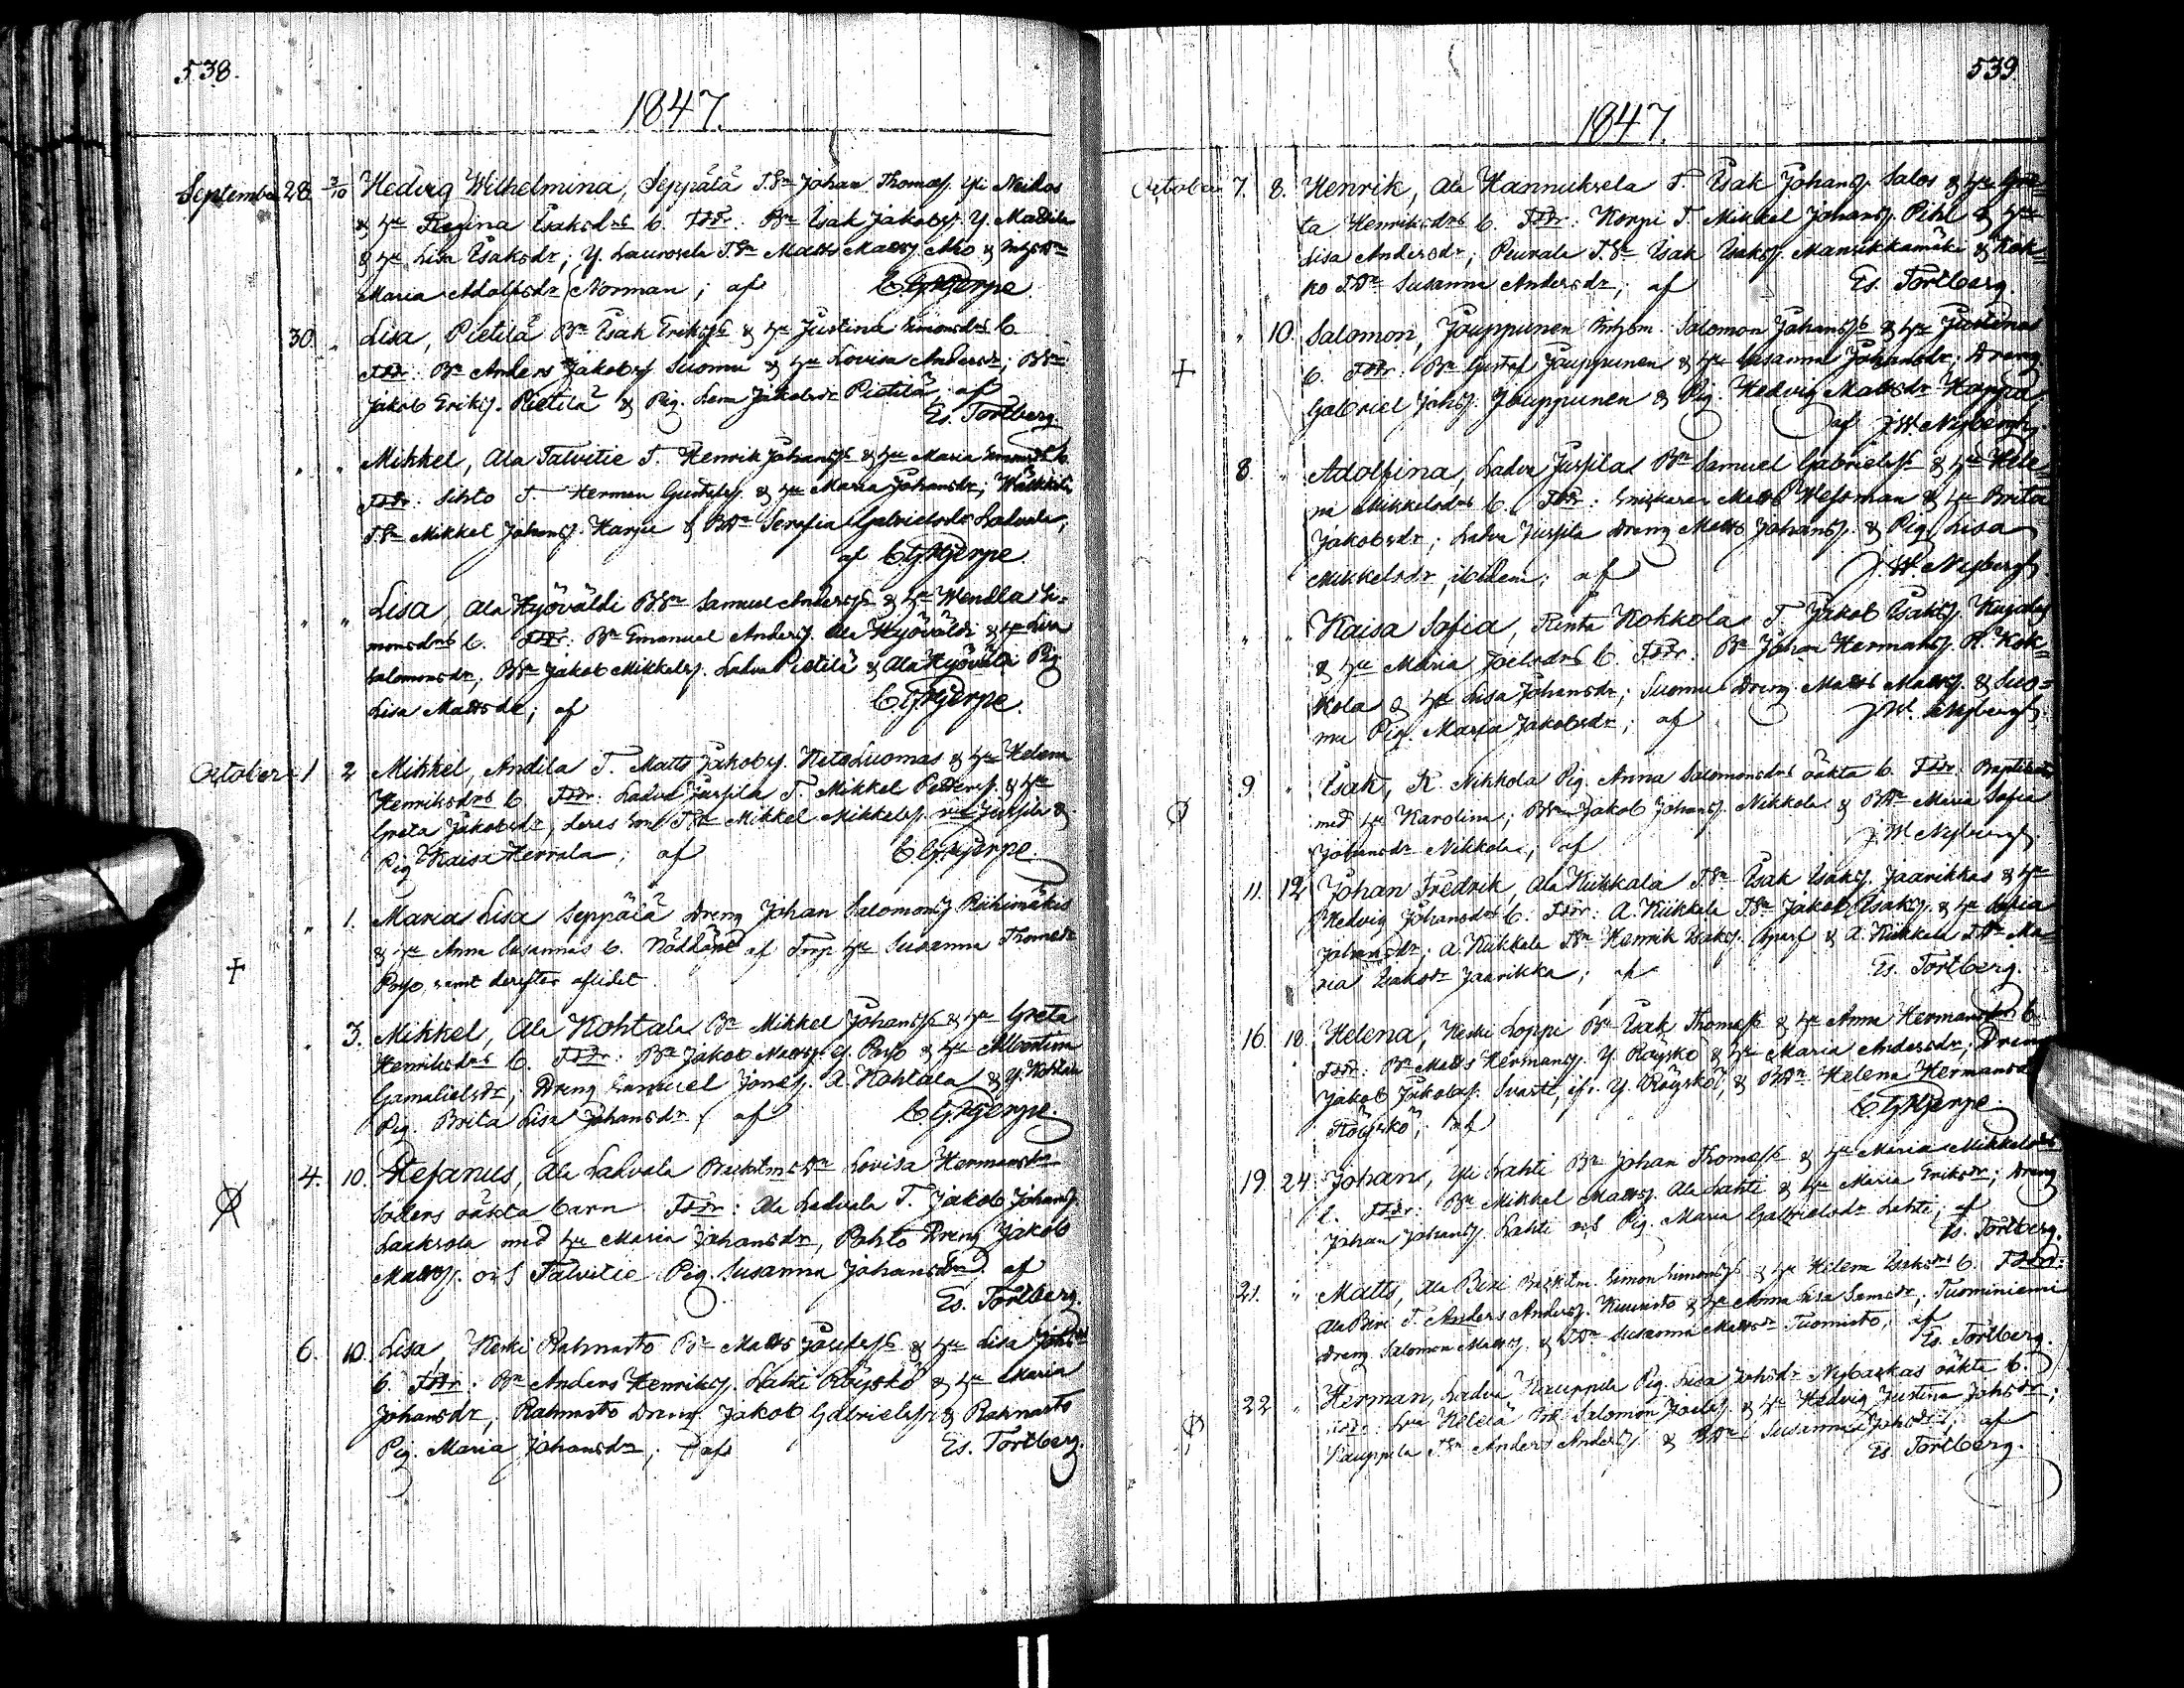 538.
1847.
September 28. 3/10 Hedvig Wilhelmina, Seppälä T.Sn Johan Thomæss. Yli Neikas
& Hu Regina Isaksdrs b. Fddr: Bn Isak Jakobss. Y. Mattila
& Hu Lisa Isaksdr; Y. Laurosela T.Sn Matts Mattss Aho &
Maria Adolfsdr Norman; af C.G. Hjerpe
30. " Lisa, Pietilä Bn Isak Erikss & Hu Justina Simonsdrs b
Fddr: Bn Anders Jakobss Suomu & Hu Lovisa Andersdr; BSn
Jakob Erikss. Pietilä & Pig. Lena Jakobsdr Pietilä; af
Es. Tortberg
" " Mikkel, Ala Talvitie T. Henrik Johanss & Hu Maria b.
Fddr: Sihto T. Herman Gustafss. & Hu Maria Johansdr;
T.Sn Mikkel Johanss. Harju & BDr Serafia Gabrielsdr Ladvala;
af C.G. Hjerpe
" " Lisa, Ala Hyöväldi BSn Samuel Anderss & Hu Wendla Si-
monsdrs b. Fddr: Bn Emanuel Anderss. Ala Hyöväldi & Hu Lisa
Salomonsdr; BSn Jakob Mikkelss. Ladva Pietilä & Ala Hyövälti Pig
Lisa Mattsdr; af C.G. Hjerpe.
October 1 2 Mikkel, Andila T. Matts Jakobss. Ketoluomas & Hu Helena
Henriksdrs b. Fddr: Ladva Jussila T. Mikkel Pederss. & Hu
Greta Jakobsdr, deras son T.Sn Mikkel Mikkelss. Jussila &
Pig Kaisa Herrala; af C.G. Hjerpe.
" 1. Maria Lisa Seppälä Dreng Johan Salomonss Riihimäkis
& Hu Anna Susannas b. Nöddöpt af Torp. Hu Susanna Thomædr
Poso, samt derefter aflidet.
" 3. Mikkel, Ala Kohtala Bn Mikkel Johanss & Hu Greta
Henriksdrs b. Fddr: Bn Jakob Mattss. Y. Passo & Hu Albertina
Gamalielsdr; Dreng Samuel Joness. A. Kohtala & Y. Kohtala
Pig. Brita Lisa Johansdr; af C.G. Hjerpe.
4. 10. Stefanus, Ala Ladvala Lovisa Hermansdr
Söders oäkta barn Fddr: Ala Ladvala T. Jakob Johanss.
Laaksola med Hu Maria Johansdr, Pohto Dreng Jakob
Mattss. och Talvitie Pig. Susanna Johansdr, af
Es. Tortberg.
6. 10. Lisa, Keski Rahnasto Bn Matts Josefss & Hu Lisa Johsdrs
b. Fddr: Bn Anders Henrikss. Lahti Röyskö & Hu Maria
Johansdr, Rahnasto Dreng Jakob Gabrielss. & Rahnasto
Pig. Maria Johansdr; af Es. Tortberg.
539
1847.
October 7. 8. Henrik, Ala Hannuksela T. Isak Johanss. Salos & Hu Gre-
ta Henriksdrs b. Fddr: Korpi T. Mikkel Johanss. Pihl & Hu
Lisa Andersdr; Peurala T.Sn Isak Isakss. Mansikkamäki & Kok-
ko T.Dr Susanna Andersdr; af Es. Tortberg.
" 10. Salomon, Jouppunen Salomon Johanss & Hu Justinas
b. Fddr: Bn Gustaf Jouppunen & Hu Susanna Johansdr; Dreng
Gabriel Johss. Jouppunen & Pig. Hedvig Mattsdr
af J.W. Nybergh.
8. " Adolfina, Ladva Jussila Bn Samuel Gabrielss & Hu Hele-
na Mikkelsdrs b. Fddr: Matts Wessman & Hu Brita
Jakobsdr; Ladva Jussila Dreng Matts Johanss. & Pig Lisa
Mikkelsdr ibidem; af J.W. Nybergh
" " Kaisa Sofia, Rinta Kokkola T. Jakob Isakss.
& Hu Maria Joelsdrs b. Fddr: Bn Johan Hermanss. R. Kok-
kola & Hu Lisa Johansdr; Suomu Dreng Matts Mattss. & Suo-
mu Pig. Maria Jakobsdr; af J.W. Nybergh.
9 " Isak, K. Nikkola Pig. Anna Salomonsdrs oäkta b. Fddr:
med Hu Karolina; BSn Jakob Johanss. Nikkola & BDr Maria Sofia
Johansdr Nikkola; af J.W. Nybergh.
11. 12 Johan Fredrik, Ala Kükkala T.Sn Isak Isakss. Jaarikkas & Hu
Hedvig Johansdrs b. Fddr: A. Kükkala T.Sn Jakob Isakss. & Hu Sofia
Johansdr; A. Kükkala T.Sn Henrik Isakss. & A. Kükkala T.Dr Ma-
ria Isaksdr Jaarikka; af Es. Tortberg.
16. 18. Helena, Keski Loppi Bn Isak Thomæss & Hu Anna Hermansdrs b
Fddr: Bn Matts Hermanss. Y. Röyskö & Hu Maria Andersdr; Dreng
Jakob Jakobss. Svartt, ifr. Y. Röyskö, & BDr Helena Hermansdr
Röyskö; af C.G. Hjerpe.
19. 24 Johan, Yli Lahti Bn Johan Thomæss & Hu Maria Mikkelsdrs
b. Fddr: Bn Mikkel Mattss. Ala Lahti & Hu Maria Eriksdr; Dreng
Johan Johanss. Lahti och Pig. Maria Gabrielsdr Lahti; af
Es. Tortberg.
21. " Matts, Ala Beri Simon Simonss & Hu Helena Isaksdrs b. Fddr:
Ala Beri T. Anders Anderss. Kuusisto & Hu Anna Lisa Samsdr; Tuominiemi
Dreng Salomon Mattss. & Susanna Mattsdr Tuomisto, af
Es. Tortberg.
22 " Herman, Ladva Kauppila Pig. Lisa Johsdr oäkta b.
Fddr: Salomon Joelss. & Hu Hedvig Justina Johsdr;
Kauppila T.Sn Anders Anderss. & BDr Susanna Johsdr; af
Es. Tortberg.